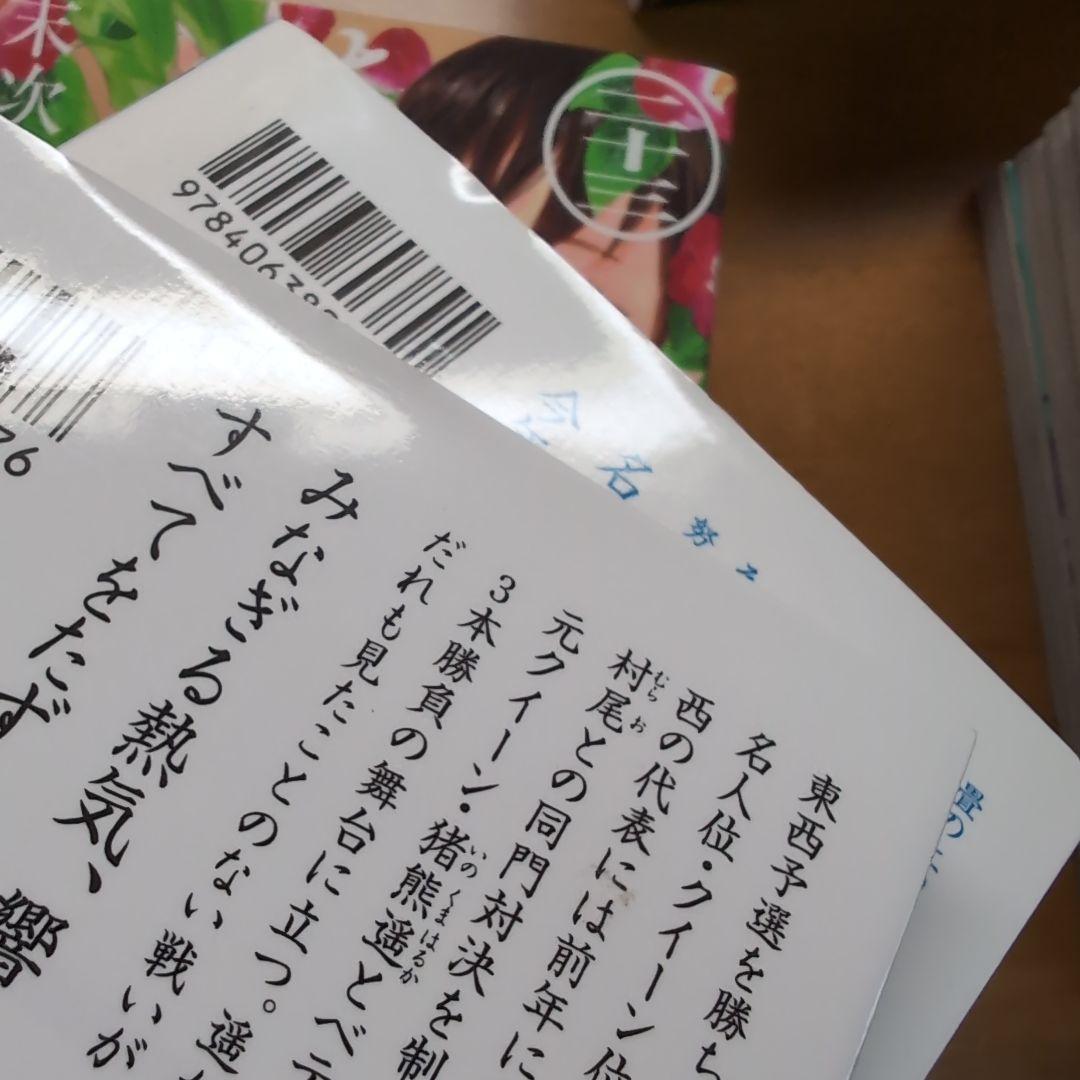 末次
二十三
東西予選を勝ち
名人位・クイーン位
西の代表には前年に
村尾との同門対決を制
むら お
元クイーン・猪熊遥とベテ
いのくまはるか
3本勝負の舞台に立つ。遥
だれも見たことのない戦いが
みなぎる熱気、響
すべてをたず
9784063
76
名
努
畳の